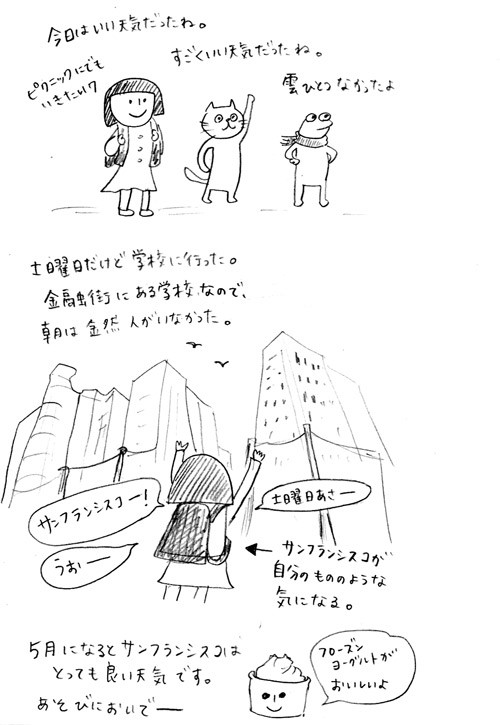 今日はいい天気だったね。
すごくいい天気だったね。
ピクニックにでも
いきたい!?
雲ひとつなかったよ
土曜日だけど学校に行った。
金融街にある学校なので、
朝は全然人がいなかった。
サンフランシスコー!
土曜日あさー
うおー
サンフランシスコが
自分のもののような
気になる。
5月になるとサンフランシスコは
とっても良い天気です。
あそびにおいでー
フローズン
ヨーグルトが
おいしいよ